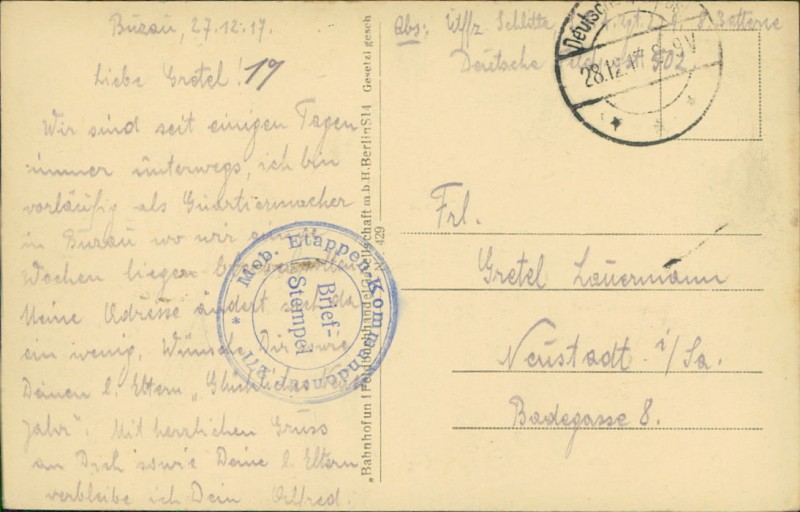 Buzau, 27.12.17.
Liebe Gretel! 19
Wir sind seit einigen Tagen
immer unterwegs, ich bin
vorläufig als Quartiermacher
in Buzau wo wir
Wochen liegen
Meine Adresse ändert sich da
ein wenig. Wünsche Dir sowie
Deinen l. Eltern „Glückliches
Jahr". Mit herzlichen Gruss
an Dich sowie Deine l. Eltern
verbleibe ich Dein Alfred.
Mob. Etappen-Kommandon
Brief-
Stempel
„Bahnhof und Feldbuchhandel Gesellschaft m.b.H. Berlin S14 Gesetzl gesch
429
Abs: Uffz. Schlitte, Batterie
Deutsche Feldpost 502.
Deutsche Feldpost
28.12.17 8-9V
Frl.
Gretel Lauermann
Neustadt i/Sa.
Badegasse 8.